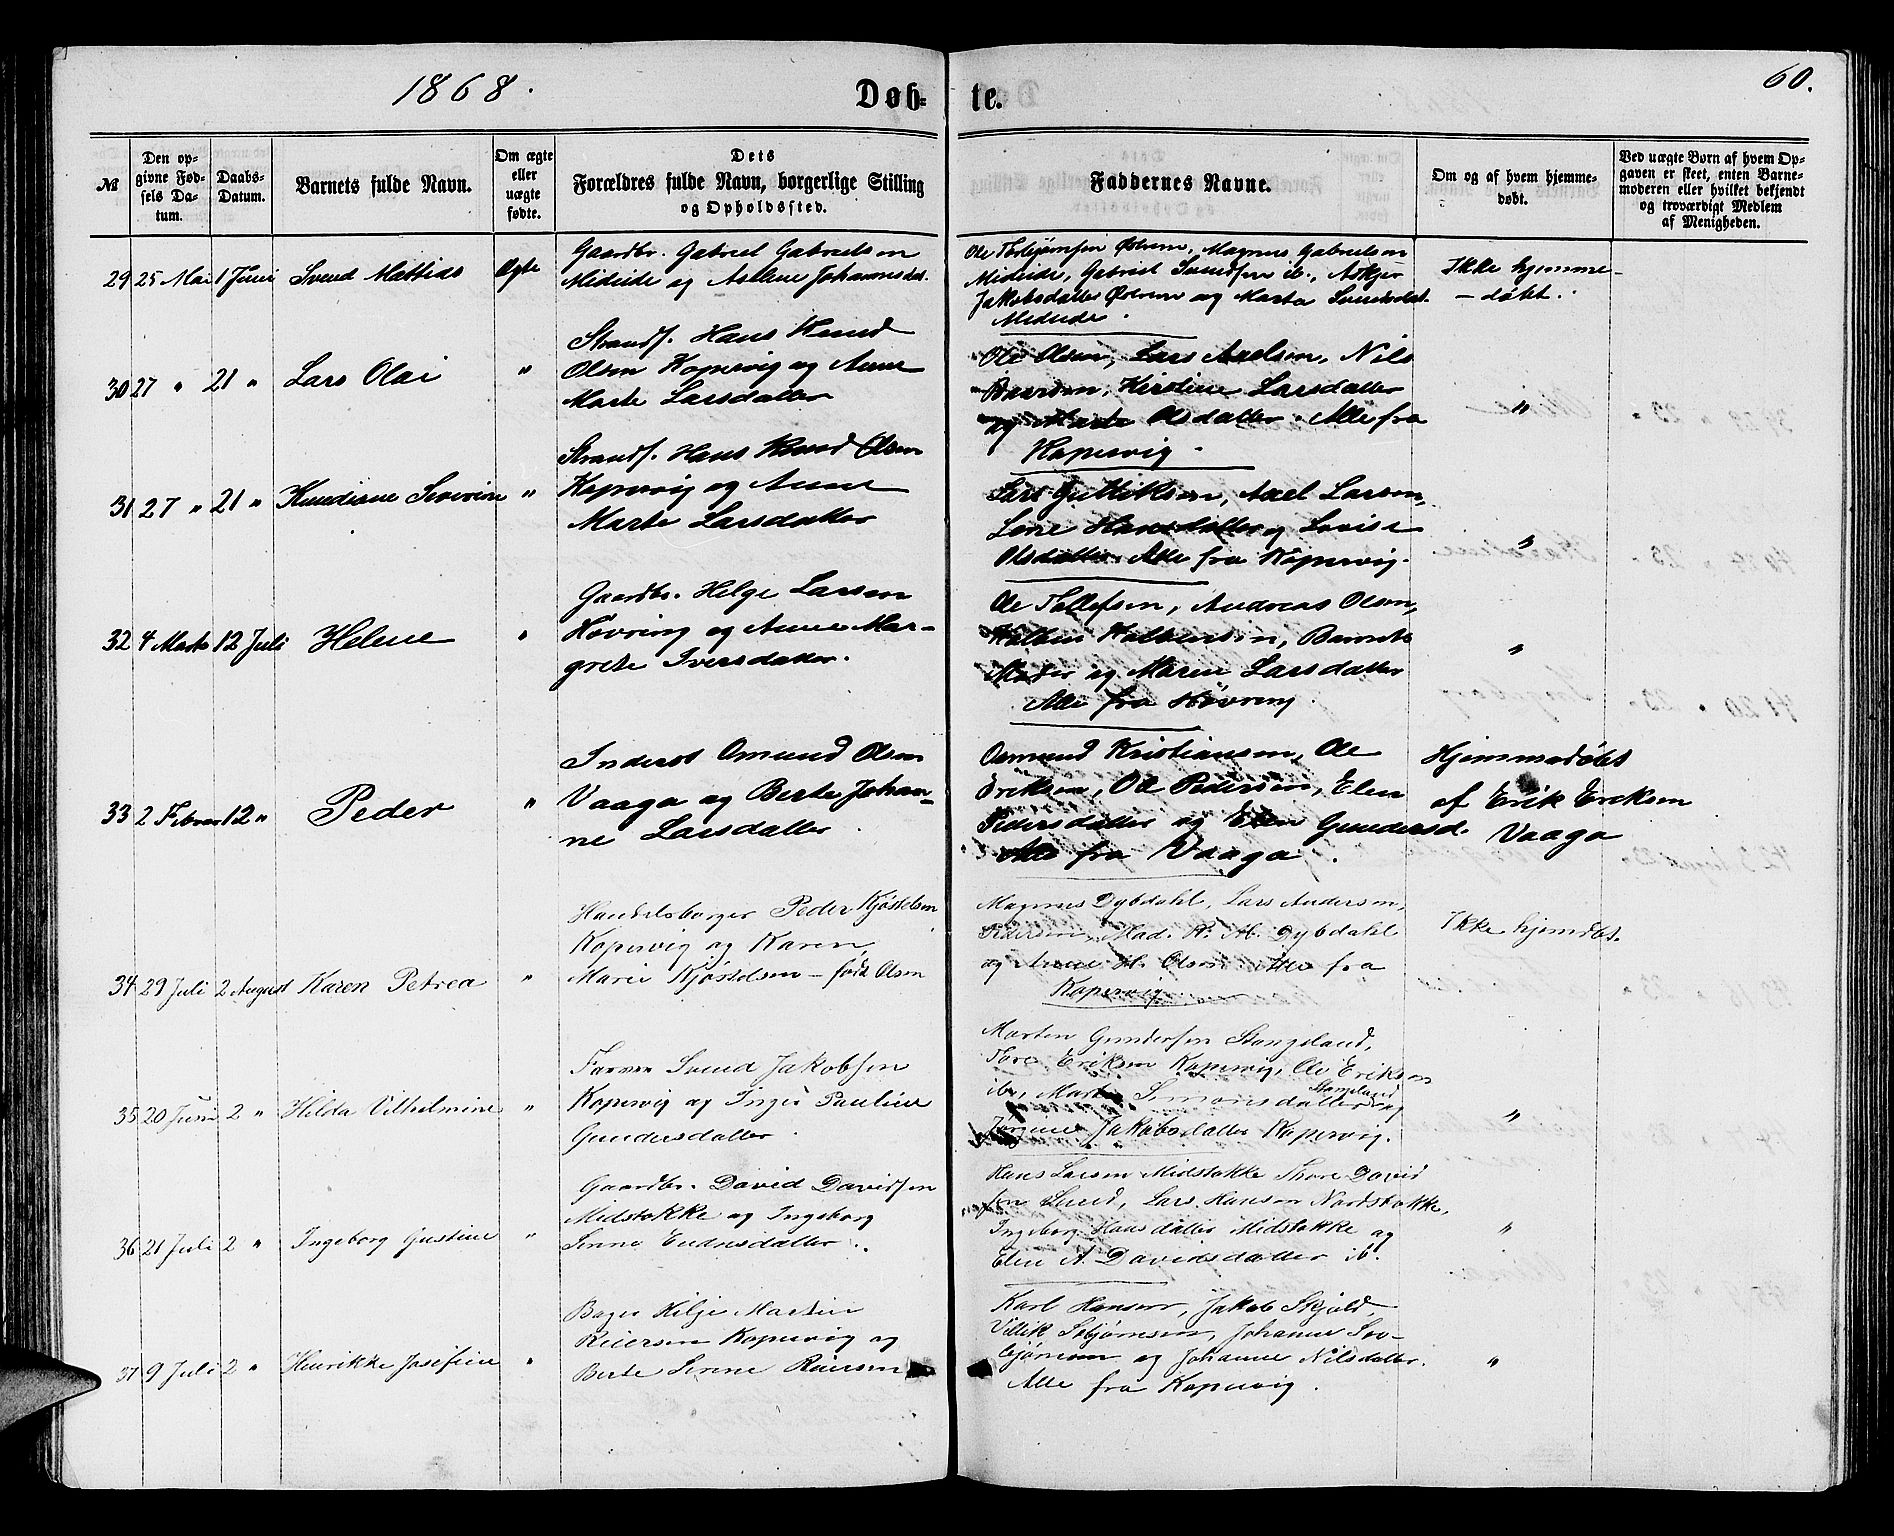 1868.
Døb-
te.
60.
№
Den op-
givne Fød-
sels Da-
tum.
Daabs-
Datum.
Barnets fulde Navn.
Om ægte
eller
uægte
fødte.
Dets
Forældres fulde Navn, borgerlige Stilling
og Opholdssted.
Faddernes Navne.
Om og af hvem hjemme-
døbt.
Ved uægte Børn af hvem Op-
gaven er skeet, enten Barne-
moderen eller hvilket bekjendt
og troværdigt Medlem
af Menigheden.
29 25 Mai 1 Juni Svend Mattias Ægte
Gaardbr. Gabriel Gabrielsen
Mediide og Aslene Johannesdat.
Ole Thorbjørnsen Østrem, Magnus Gabrielsen
Mediide, Gabriel Svendsen ib., Askjer
Jakobsdatter Østrem og Marta Svendsdat.
Mediide.
Ikke hjemme-
- døbt.
30 27 " 21 " Lars Olai "
Strands. Hans Knud
Olsen Kopervig og Anne
Marte Larsdatter
Ole Olsen, Lars Axelsen, Nils
Baardsen, Kirstine Larsdatter
og Marte Olsdatter. Alle fra
Kopervig.
"
31 27 " 21 " Knudiane Severine "
Strands. Hans Knud Olsen
Kopervig og Anne
Marte Larsdatter
Lars Guttiksen, Axel Larsen,
Lene Hansdatter og Lovise
Olsdatter. Alle fra Kopervig.
"
32 4 Marts 12 Juli Helene "
Gaardbr. Helge Larsen
Høvring og Anne Mar-
grete Iversdatter.
Ole Tollefsen, Andreas Olsen,
Barnets
Moder og Maren Larsdatter
Alle fra Høvring.
"
33 2 Februar 12 " Peder "
Inderst Omund Olsen
Vaaga og Berte Johan-
ne Larsdatter.
Osmund Kristiansen, Ole
Eriksen, Ole Pedersen, Elen
Pedersdatter og Elen Gundersd.
Alle fra Vaaga.
Hjemmedøbt
af Erik Eriksen
Vaaga
34 29 Juli 2 August Karen Petrea "
Handelsborger Peder Kjøstelsen
Kopervig og Karen
Marie Kjøstelsen - født Olsen
Magnus Dybdahl, Lars Andersen,
Pedersen, Mad. K. M. Dybdahl
og Anne H. Olsen. Alle fra
Kopervig.
Ikke hjemdbt.
35 20 Juni 2 " Hilda Vilhelmine "
Farver Svend Jakobsen
Kopervig og Inger Pauline
Gundersdatter.
Morten Gundersen Stangeland,
Tore Eriksen Kopervig, Ole Eriksen
ib., Marte Simonsdatter Stangeland og
Jørgine Jakobsdatter Kopervig.
"
36 21 Juli 2 " Ingeborg Gustine "
Gaardbr. David Davidsen
Midstokke og Ingeborg
Serine Endresdatter.
Hans Larsen Midstokke Thore David
sen Lund, Lars Hansen Nordstokke,
Ingeborg Hansdatter Midstokke og
Elen A. Davidsdatter ib.
"
37 9 Juli 2 " Henrikke Josefine "
Bager Hilje Martin
Reiersen Kopervig og
Berte Serine Reiersen
Karl Hansen, Jakob Skjold,
Villik Sebjørnsen, Johanne Seb-
bjørnsen og Johanne Nilsdatter.
Alle fra Kopervig.
"